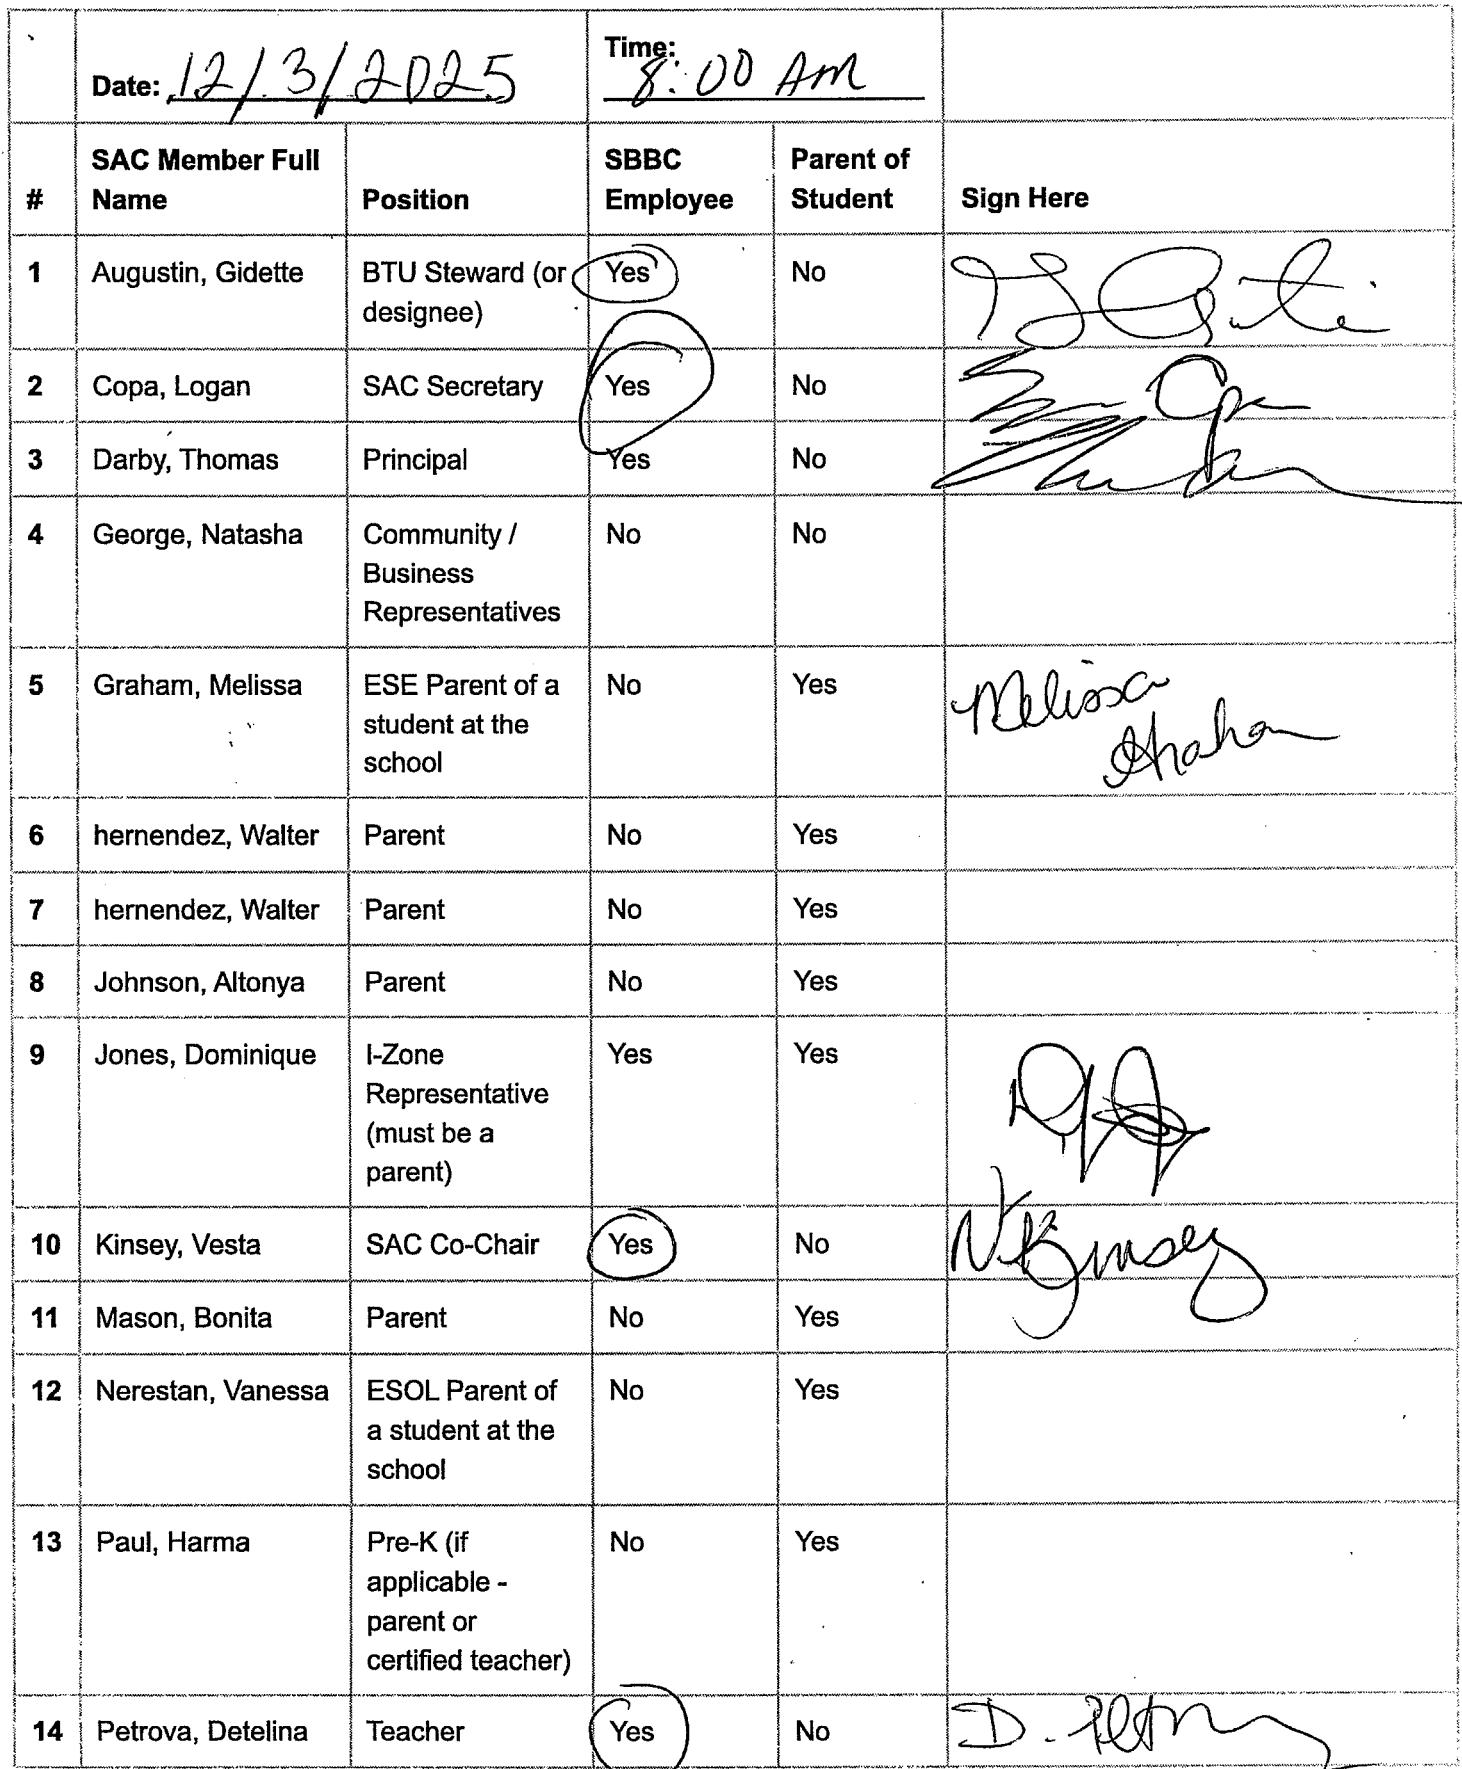 Date: 12/3/2025 Time: 8:00 AM
# SAC Member Full Name Position SBBC Employee Parent of Student Sign Here
1 Augustin, Gidette BTU Steward (or designee) Yes No
2 Copa, Logan SAC Secretary Yes No
3 Darby, Thomas Principal Yes No
4 George, Natasha Community / Business Representatives No No
5 Graham, Melissa ESE Parent of a student at the school No Yes Melissa Graham
6 hernendez, Walter Parent No Yes
7 hernendez, Walter Parent No Yes
8 Johnson, Altonya Parent No Yes
9 Jones, Dominique I-Zone Representative (must be a parent) Yes Yes
10 Kinsey, Vesta SAC Co-Chair Yes No V. Kinsey
11 Mason, Bonita Parent No Yes
12 Nerestan, Vanessa ESOL Parent of a student at the school No Yes
13 Paul, Harma Pre-K (if applicable - parent or certified teacher) No Yes
14 Petrova, Detelina Teacher Yes No D.